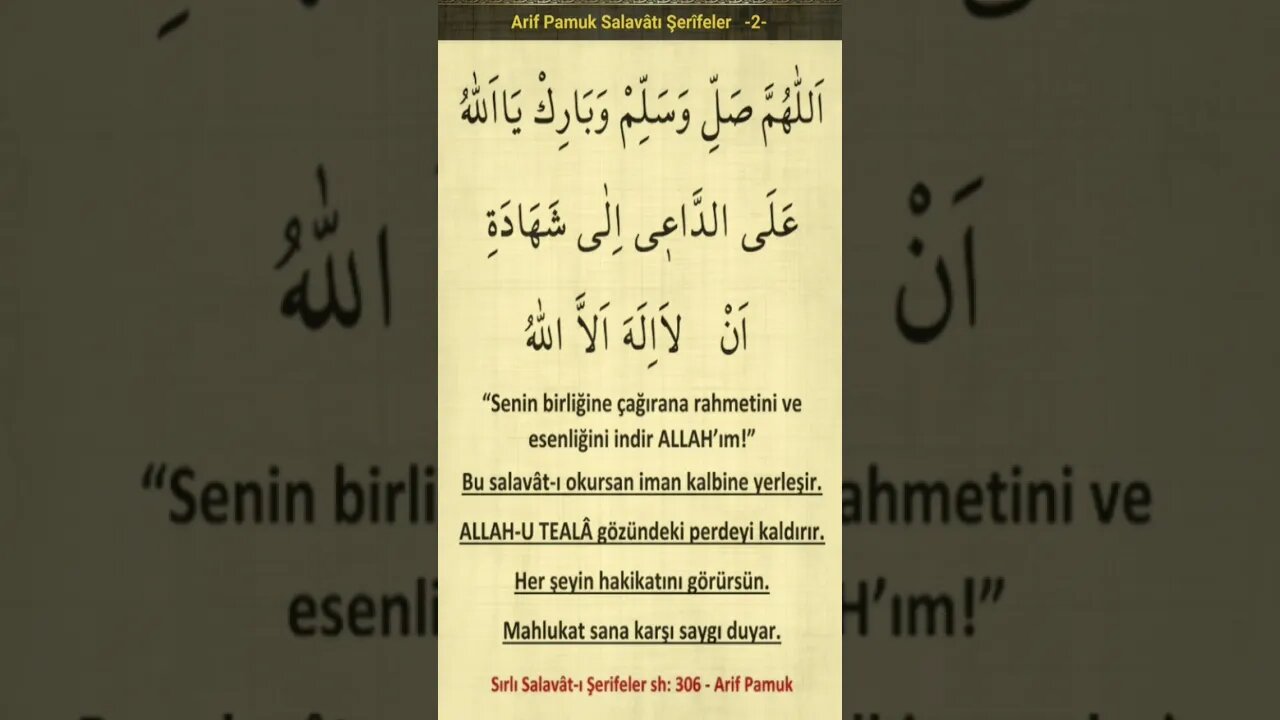 Arif Pamuk Salavâtı Şerîfeler -2-
اَللّٰهُمَّ صَلِّ وَسَلِّمْ وَبَارِكْ يَااَللّٰهُ
عَلَى الدَّاعٖى اِلٰى شَهَادَةِ
اَنْ لاَاِلَهَ اَلاَّ اللّٰهُ
“Senin birliğine çağırana rahmetini ve
esenliğini indir ALLAH’ım!”
Bu salavât-ı okursan iman kalbine yerleşir.
ALLAH-U TEALÂ gözündeki perdeyi kaldırır.
Her şeyin hakikatını görürsün.
Mahlukat sana karşı saygı duyar.
Sırlı Salavât-ı Şerifeler sh: 306 - Arif Pamuk